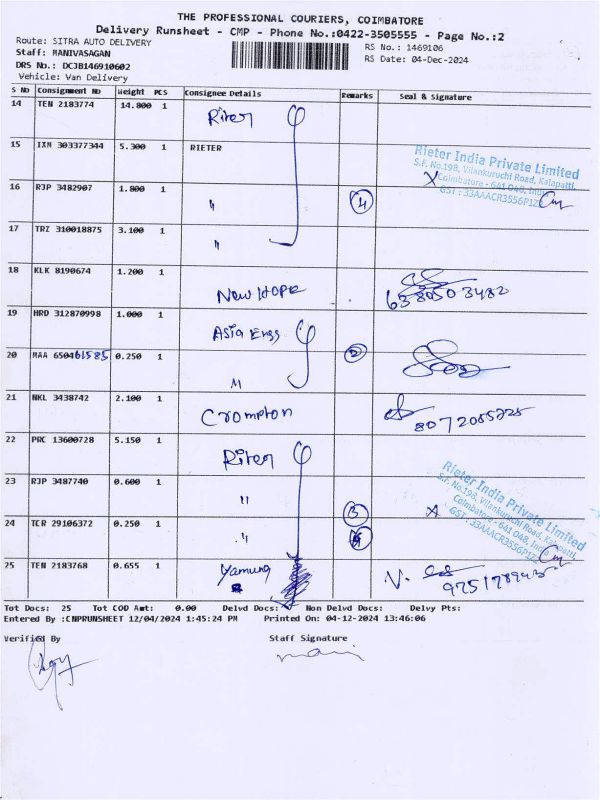 THE PROFESSIONAL COURIERS, COIMBATORE
Delivery Runsheet - CMP - Phone No.:0422-3505555 - Page No.:2
Route: SITRA AUTO DELIVERY
RS No.: 1469106
Staff: MANIVASAGAN
RS Date: 04-Dec-2024
DRS No.: DCJB146910602
Vehicle: Van Delivery
S No Consignment No Weight PCS Consignee Details Remarks Seal & Signature
14 TEN 2183774 14.800 1 Riter
15 IXM 303377344 5.300 1 RIETER
Rieter India Private Limited
S.F. No.198, Vilankuruchi Road, Kalapatti,
Coimbatore - 641 048, India
GST : 33AAACR3556P1Z
16 RJP 3482907 1.800 1 " 4
17 TRZ 310018875 3.100 1 "
18 KLK 8190674 1.200 1 New HOPE
19 HRD 312870998 1.000 1 Asia Engg
20 MAA 650461585 0.250 1 " 2
21 NKL 3438742 2.100 1 Crompton
22 PRC 13600728 5.150 1 Riter
23 RJP 3487740 0.600 1 " 3
Rieter India Private Limited
S.F. No.198, Vilankuruchi Road, Kalapatti,
Coimbatore - 641 048, India
GST : 33AAACR3556P1Z
24 TCR 29106372 0.250 1 "
25 TEN 2183768 0.655 1 Yamung
Tot Docs: 25 Tot COD Amt: 0.00 Delvd Docs: Non Delvd Docs: Delvy Pts:
Entered By :CMPRUNSHEET 12/04/2024 1:45:24 PM Printed On: 04-12-2024 13:46:06
Verified By Staff Signature